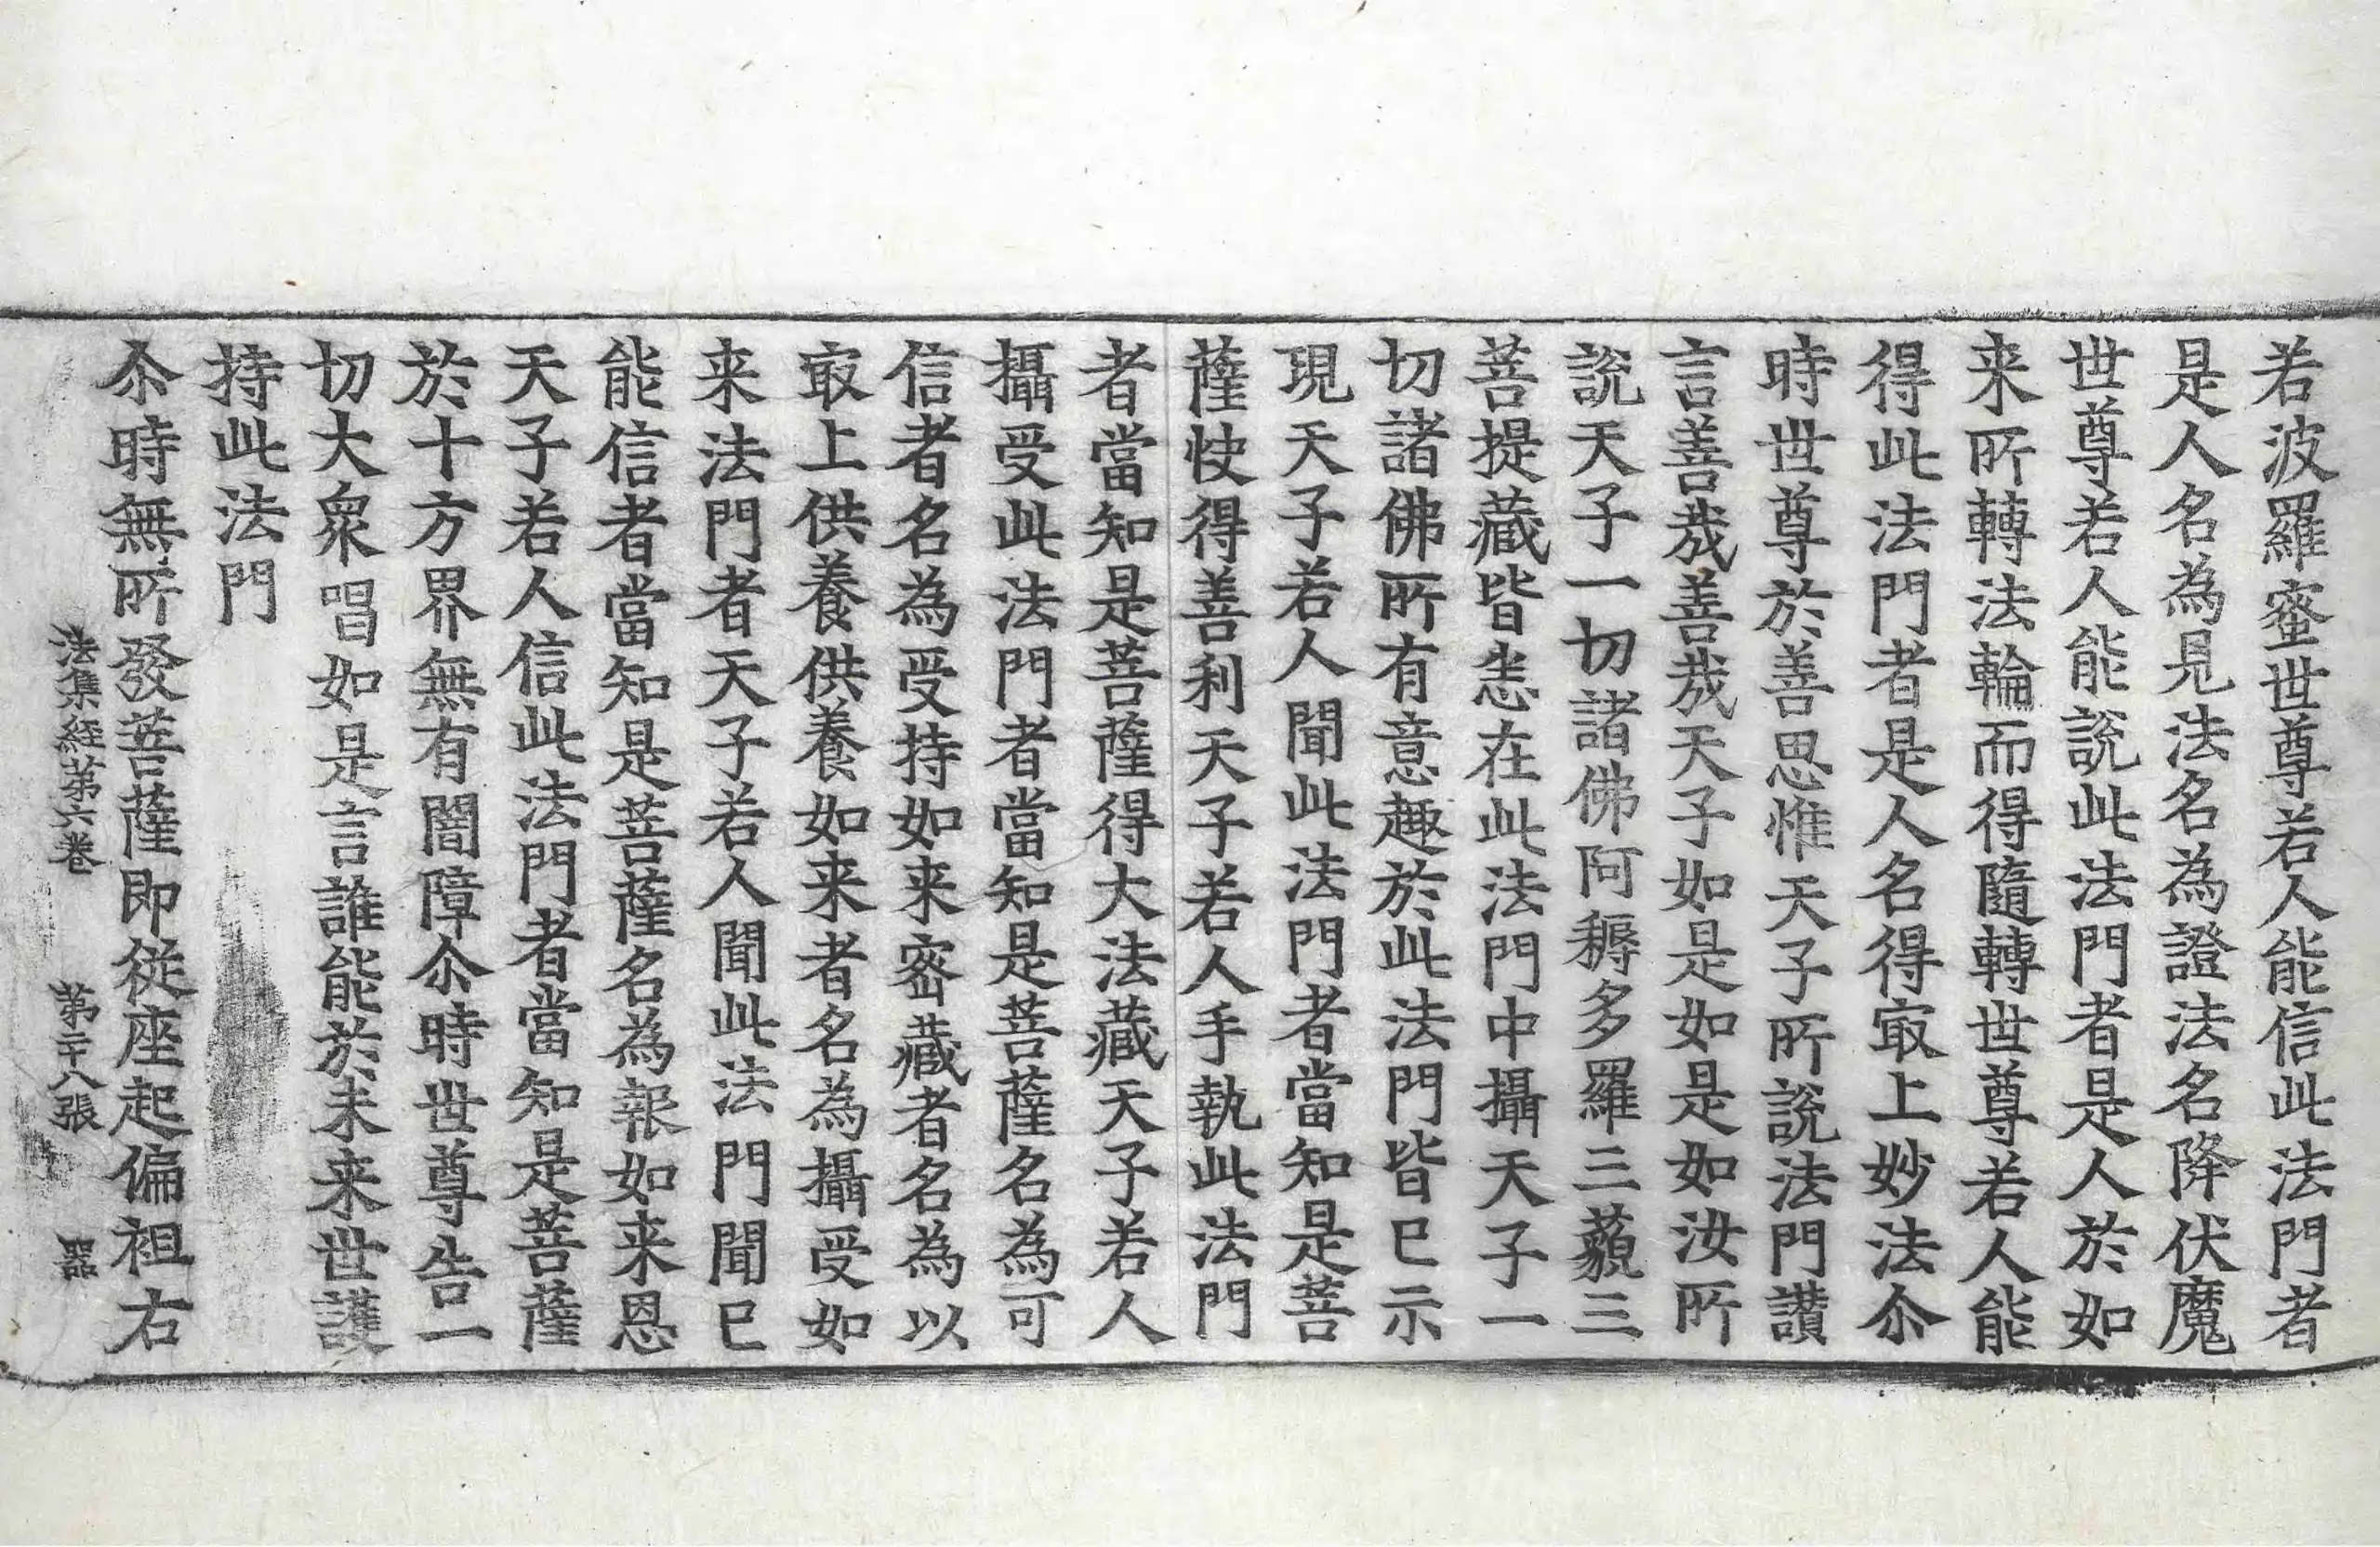 若波羅蜜世尊若人能信此法門者
是人名為見法名為證法名降伏魔
世尊若人能說此法門者是人於如
来所轉法輪而得隨轉世尊若人能
得此法門者是人名得冣上妙法尒
時世尊於善思惟天子所說法門讚
言善哉善哉天子如是如是如汝所
說天子一切諸佛阿耨多羅三藐三
菩提藏皆悉在此法門中攝天子一
切諸佛所有意趣於此法門皆已示
現天子若人聞此法門者當知是菩
薩快得善利天子若人手執此法門
者當知是菩薩得大法藏天子若人
攝受此法門者當知是菩薩名為可
信者名為受持如来密藏者名為以
冣上供養供養如来者名為攝受如
来法門者天子若人聞此法門聞已
能信者當知是菩薩名為報如来恩
天子若人信此法門者當知是菩薩
於十方界無有闇障尒時世尊告一
切大衆唱如是言誰能於未来世護
持此法門
尒時無所發菩薩即從座起偏袒右
法集経第六卷　第二十八張　器